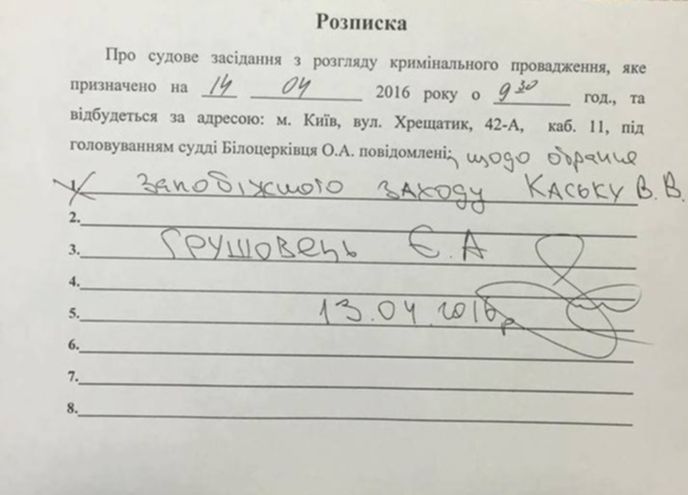 Розписка
Про судове засідання з розгляду кримінального провадження, яке
призначено на 14 04 2016 року о 9 30 год., та
відбудеться за адресою: м. Київ, вул. Хрещатик, 42-А, каб. 11, під
головуванням судді Білоцерківця О.А. повідомлені: щодо обрання
1. запобіжного заходу Каську В.В.
2.
3. Грушовець Є.А
4.
5. 13.04.2016р
6.
7.
8.